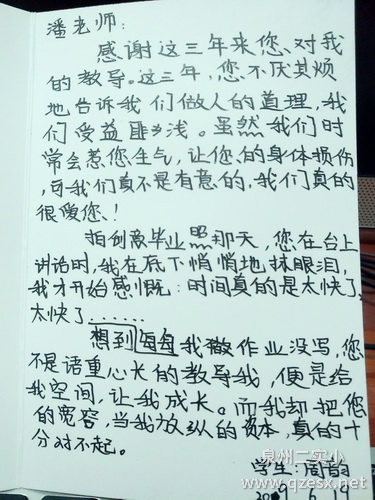 潘老师：
感谢这三年来您、对我
的教导。这三年,您不厌其烦
地告诉我们做人的道理,我
们受益匪浅。虽然我们时
常会惹您生气,让您的身体损伤
,可我们真不是有意的,我们真的
很爱您、!
拍创意毕业照那天,您在台上
讲话时,我在底下悄悄地抹眼泪,
我才开始感慨：时间真的是太快了
太快了......
想到每每我撒作业没写,您
不是语重心长的教导我,便是给
我空间,让我成长。而我却把您
的宽容,当我放纵的资本,真的十
分对不起。
学生：周韵
泉州二实小
www.qzesx.net